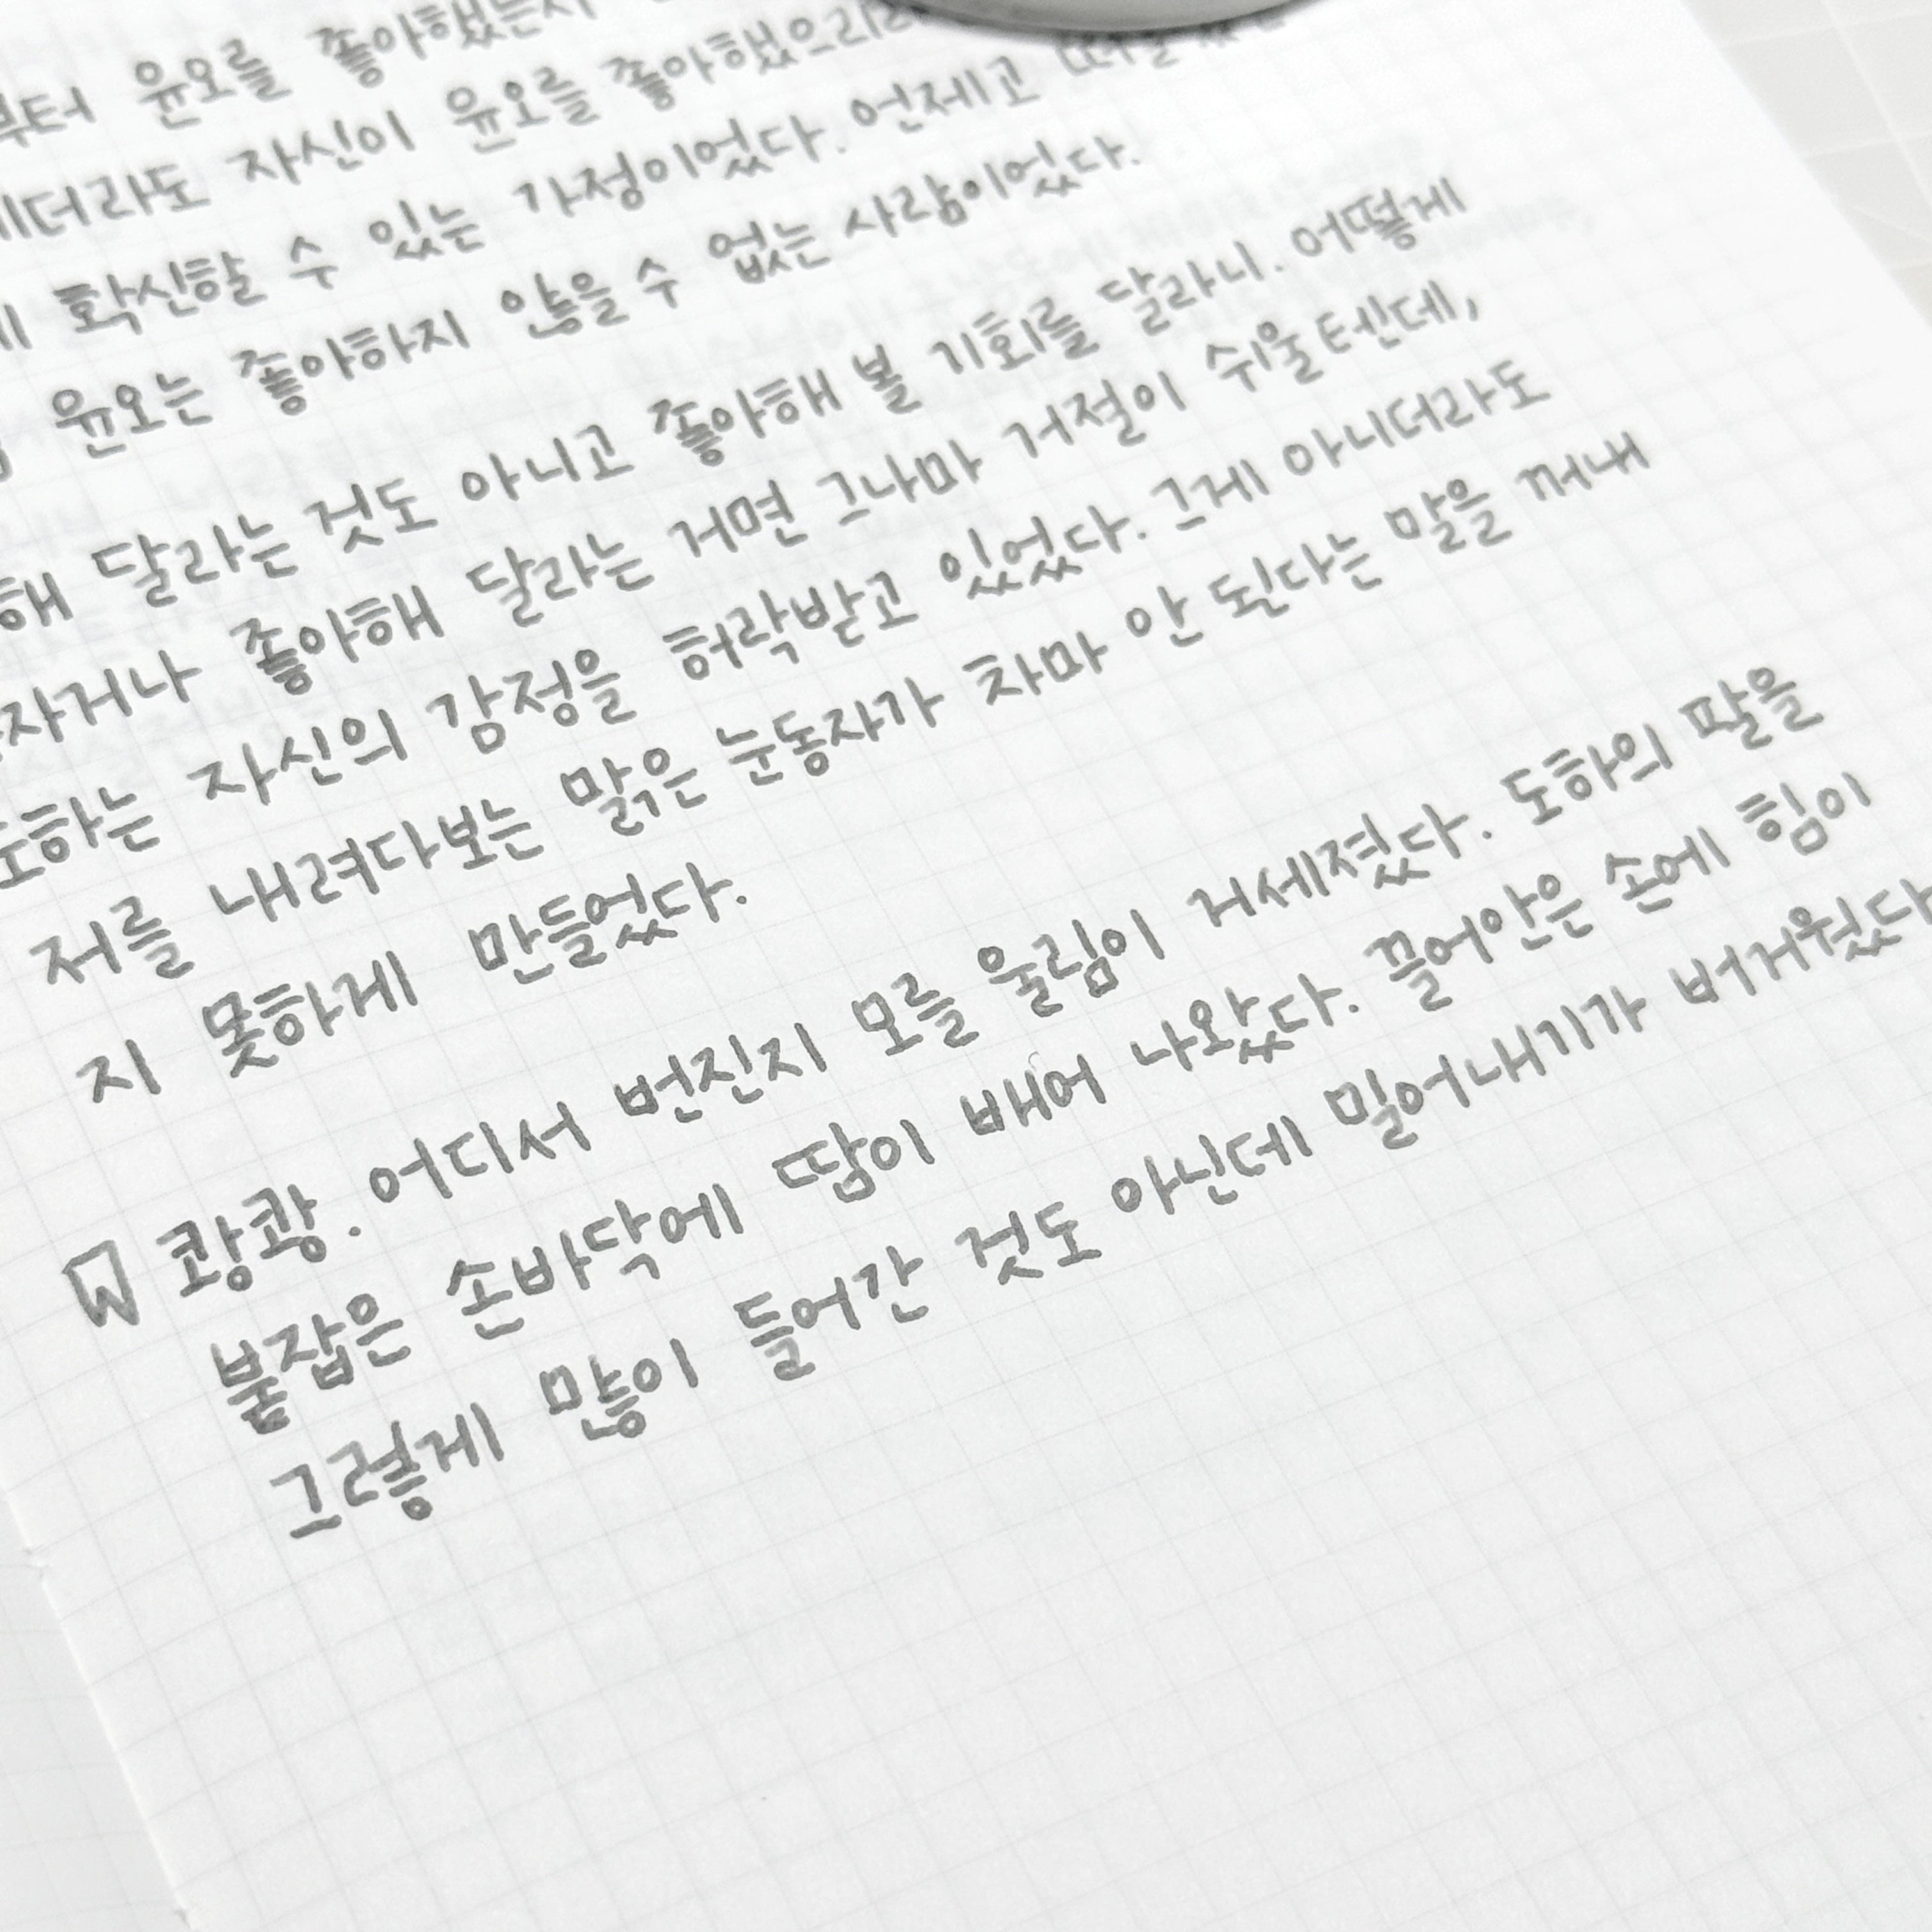 부터 윤오를 좋아했는지
더라도 자신이 윤오를 좋아했으리라
확신할 수 있는 가정이었다. 언제고
윤오는 좋아하지 않을 수 없는 사람이었다.
해 달라는 것도 아니고 좋아해 볼 기회를 달라니. 어떻게
자거나 좋아해 달라는 거면 그나마 거절이 쉬울 텐데,
도하는 자신의 감정을 허락받고 있었다. 그게 아니더라도
저를 내려다보는 맑은 눈동자가 차마 안 된다는 말을 꺼내
지 못하게 만들었다.
쾅쾅. 어디서 번진지 모를 울림이 거세졌다. 도하의 팔을
붙잡은 손바닥에 땀이 배어 나왔다. 끌어안은 손에 힘이
그렇게 많이 들어간 것도 아닌데 밀어내기가 버거웠다